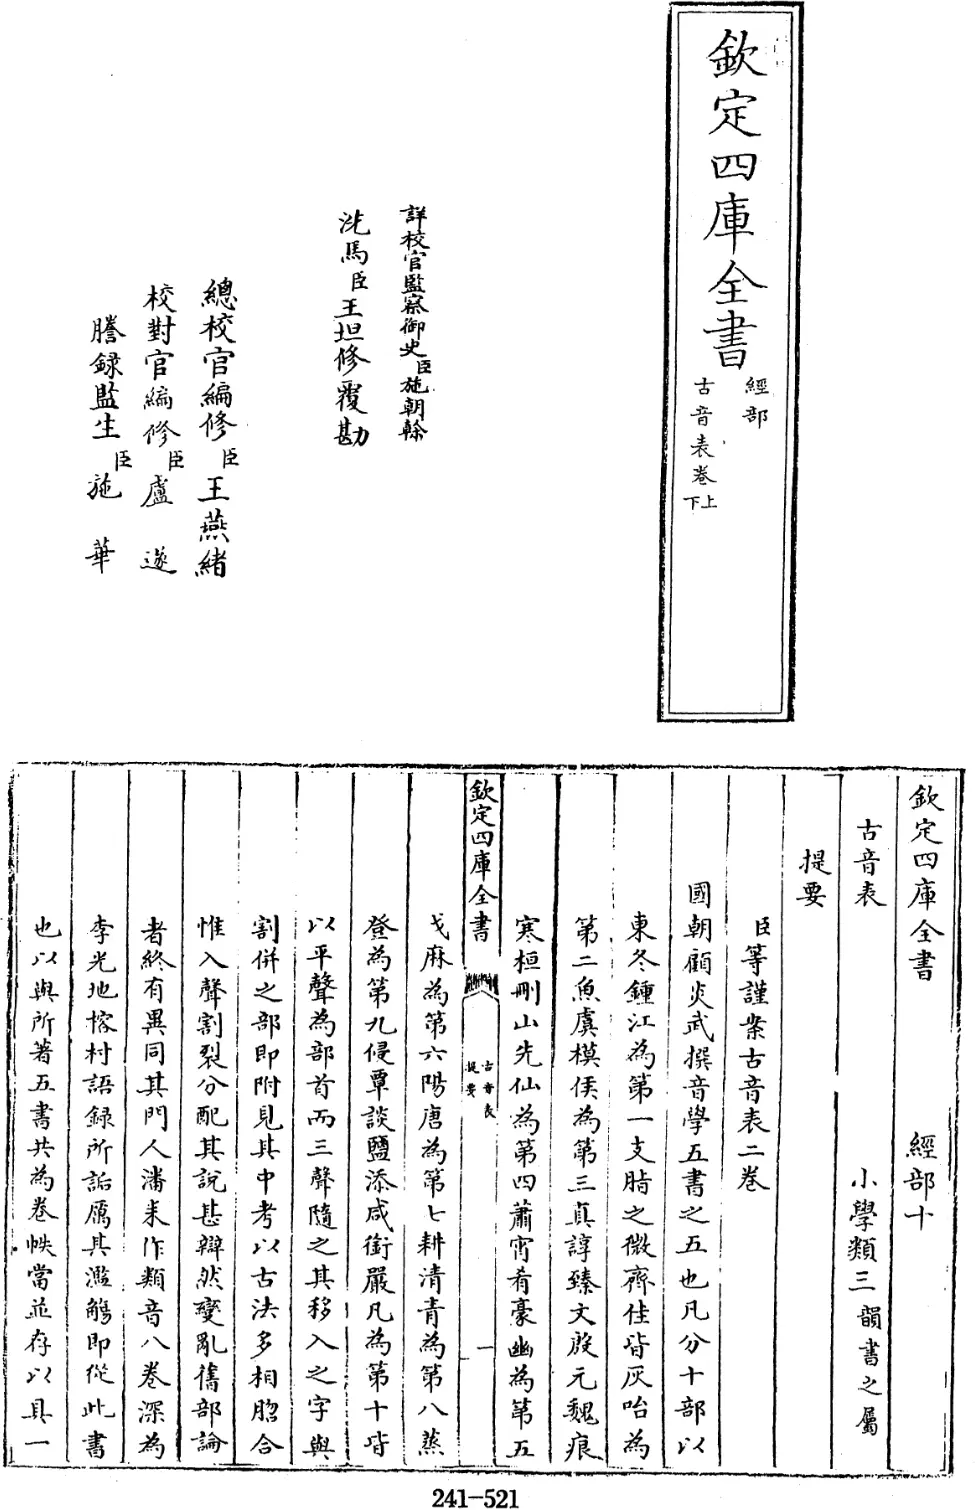 欽定四庫全書
經部
古音表卷上
下
詳校官監察御史臣施朝榦
洗馬臣王坦修覆勘
總校官編修臣王燕緒
校對官編修臣盧遂
謄録監生臣施華
欽定四庫全書 經部十
古音表 小學類三韻書之屬
提要
臣等謹案古音表二卷
國朝顧炎武撰音學五書之五也凡分十部以
東冬鍾江為第一支脂之微齊佳皆灰咍為
第二魚虞模侯為第三真諄臻文殷元魂痕
寒桓刪山先仙為第四蕭宵肴豪幽為第五
欽定四庫全書
古音表
提要
一
戈麻為第六陽唐為第七耕清青為第八蒸
登為第九侵覃談鹽添咸銜嚴凡為第十皆
以平聲為部首而三聲隨之其移入之字與
割併之部即附見其中考以古法多相脗合
惟入聲割裂分配其說甚辯然變亂舊部論
者終有異同其門人潘耒作類音八卷深為
李光地榕村語録所詬厲其濫觴即從此書
也以與所著五書共為卷帙當並存以具一
241-521